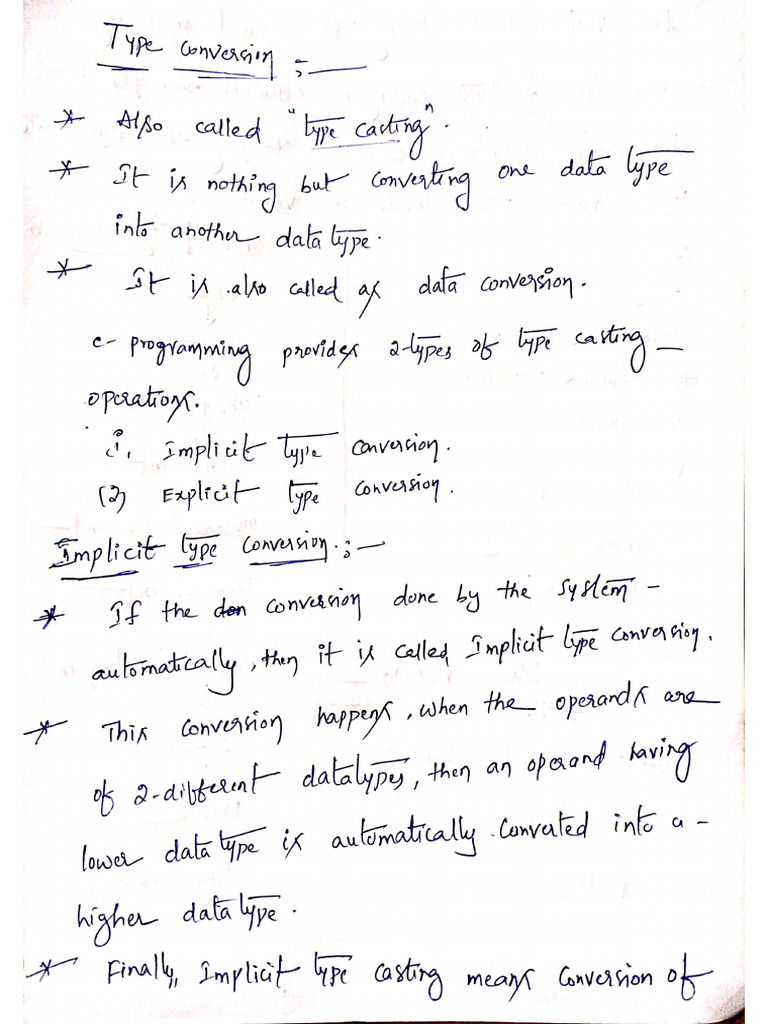 Type conversion :—
* Also called "type casting".
* It is nothing but converting one data type
into another data type.
* It is also called as data conversion.
c- programming provides 2-types of type casting —
operations.
1. Implicit type conversion.
(2) Explicit type conversion.
Implicit type conversion :—
* If the don conversion done by the system -
automatically, then it is called Implicit type conversion.
* This conversion happens, when the operands are
of 2-different datatypes, then an operand having
lower data type is automatically converted into a -
higher data type.
* Finally, Implicit type casting means conversion of